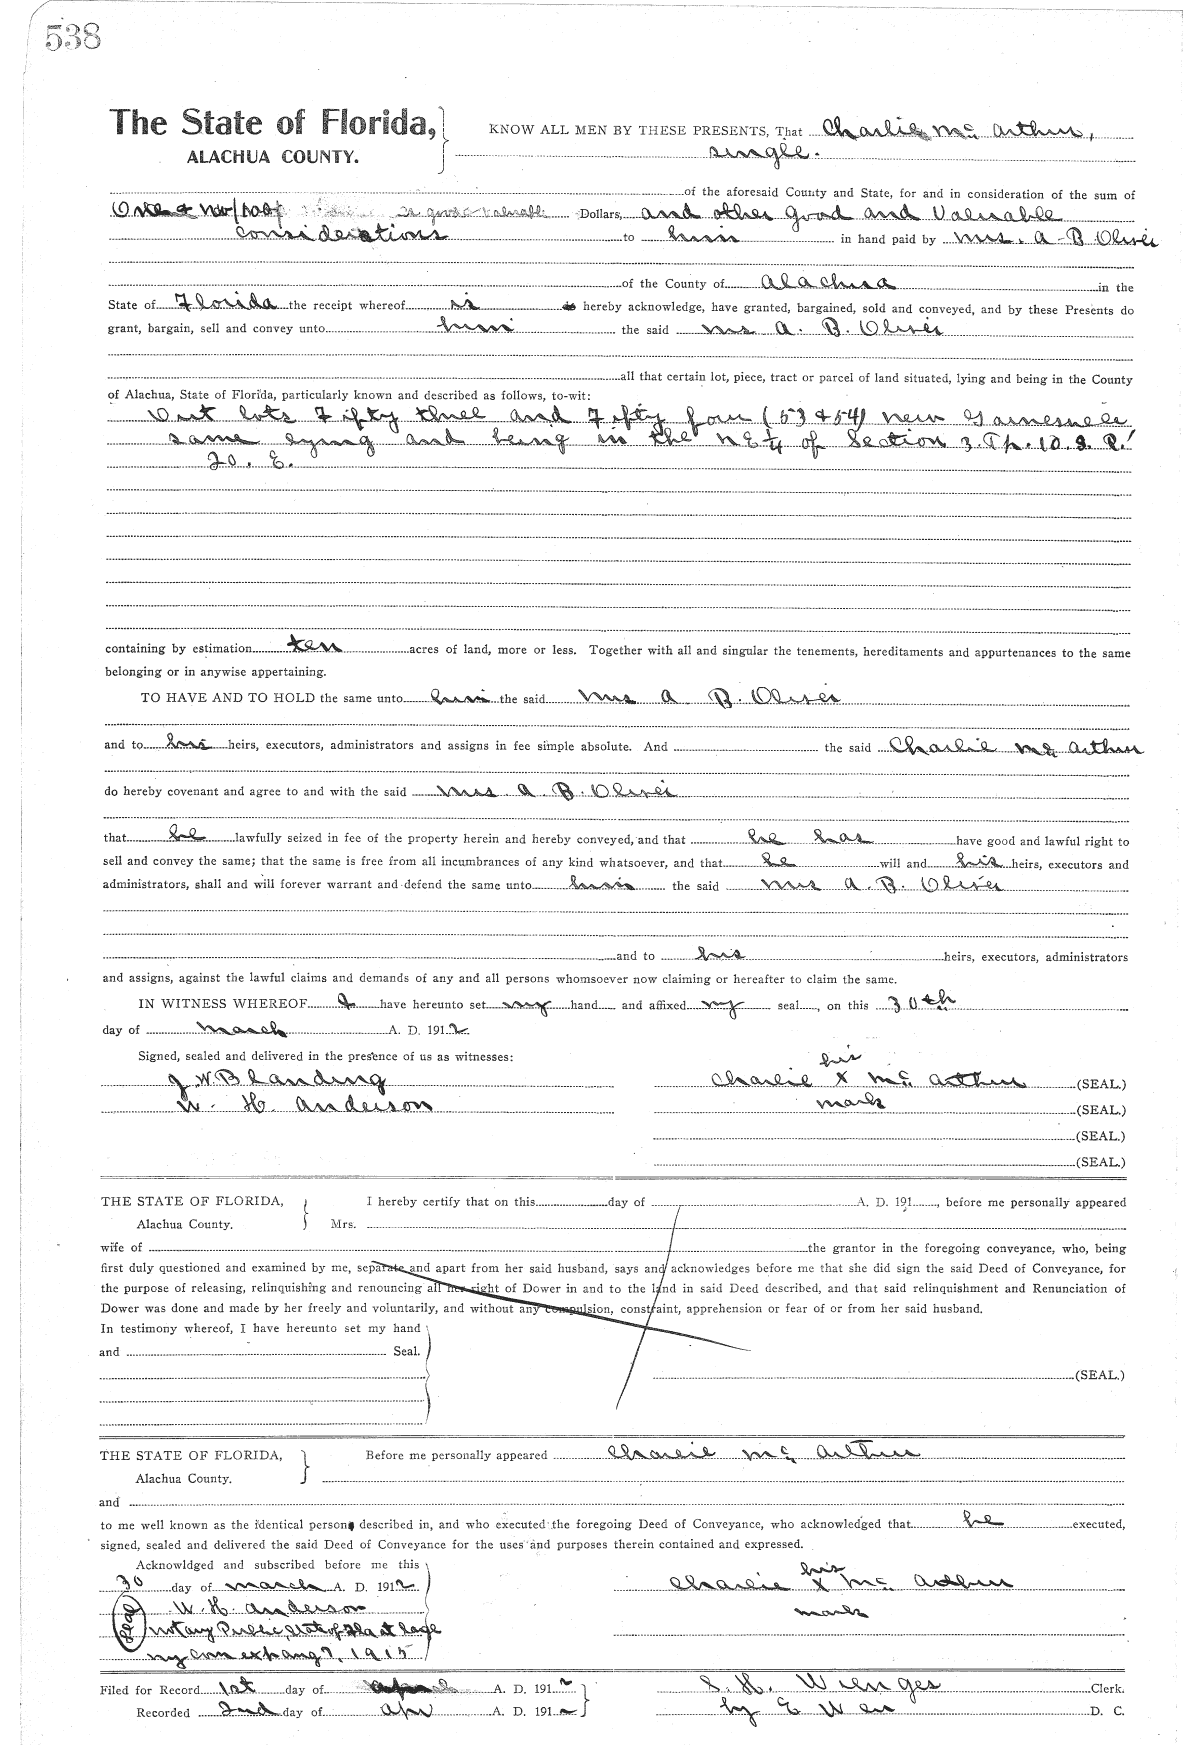 538
The State of Florida, KNOW ALL MEN BY THESE PRESENTS, That Charlie Mc Arthur,
ALACHUA COUNTY. single.
of the aforesaid County and State, for and in consideration of the sum of
One & no/100 & good & valuable Dollars, and other good and Valuable
Considerations to him in hand paid by Mrs. A B Oliver
of the County of Alachua in the
State of Florida the receipt whereof is hereby acknowledge, have granted, bargained, sold and conveyed, and by these Presents do
grant, bargain, sell and convey unto him the said Mrs A. B. Oliver
all that certain lot, piece, tract or parcel of land situated, lying and being in the County
of Alachua, State of Florida, particularly known and described as follows, to-wit:
Out lots Fifty three and Fifty four (53 & 54) New Gainesville
same lying and being in the NE 1/4 of Section 3 Tp. 10. S. R.
20. E.
containing by estimation ten acres of land, more or less. Together with all and singular the tenements, hereditaments and appurtenances to the same
belonging or in anywise appertaining.
TO HAVE AND TO HOLD the same unto him the said Mrs A B. Oliver
and to his heirs, executors, administrators and assigns in fee simple absolute. And the said Charlie Mc Arthur
do hereby covenant and agree to and with the said Mrs A. B. Oliver
that he lawfully seized in fee of the property herein and hereby conveyed, and that he has have good and lawful right to
sell and convey the same; that the same is free from all incumbrances of any kind whatsoever, and that he will and his heirs, executors and
administrators, shall and will forever warrant and defend the same unto him the said Mrs A. B. Oliver
and to his heirs, executors, administrators
and assigns, against the lawful claims and demands of any and all persons whomsoever now claiming or hereafter to claim the same.
IN WITNESS WHEREOF I have hereunto set my hand and affixed my seal, on this 30th
day of March A. D. 1912
Signed, sealed and delivered in the presence of us as witnesses:
his
J W Blanding Charlie X Mc Arthur (SEAL.)
W. H. Anderson mark (SEAL.)
(SEAL.)
(SEAL.)
THE STATE OF FLORIDA, I hereby certify that on this day of A. D. 191 , before me personally appeared
Alachua County. Mrs.
wife of the grantor in the foregoing conveyance, who, being
first duly questioned and examined by me, separate and apart from her said husband, says and acknowledges before me that she did sign the said Deed of Conveyance, for
the purpose of releasing, relinquishing and renouncing all her right of Dower in and to the land in said Deed described, and that said relinquishment and Renunciation of
Dower was done and made by her freely and voluntarily, and without any compulsion, constraint, apprehension or fear of or from her said husband.
In testimony whereof, I have hereunto set my hand
and Seal.
(SEAL.)
THE STATE OF FLORIDA, Before me personally appeared Charlie Mc Arthur
Alachua County.
and
to me well known as the identical person described in, and who executed the foregoing Deed of Conveyance, who acknowledged that he executed,
signed, sealed and delivered the said Deed of Conveyance for the uses and purposes therein contained and expressed.
Acknowldged and subscribed before me this his
30 day of March A. D. 1912 Charlie X Mc Arthur
W. H. Anderson mark
Seal Notary Public, State of Fla at large
my com exp Aug 7, 1915
Filed for Record 1st day of April A. D. 1912 S. H. Wienges Clerk.
Recorded 2nd day of Apr A. D. 1912 by E Wen D. C.